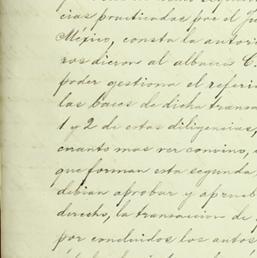 cias practicadas por el
México, consta la autori
ros dieron al albacea C.
poder gestiona el referi
las bases de dicha transa
1 y 2 de estas diligencias,
cuanto mas ver convino,
que forman esta segunda
debian aprobar y aprueb
derecho, la transaccion de
por concluidos los autos,